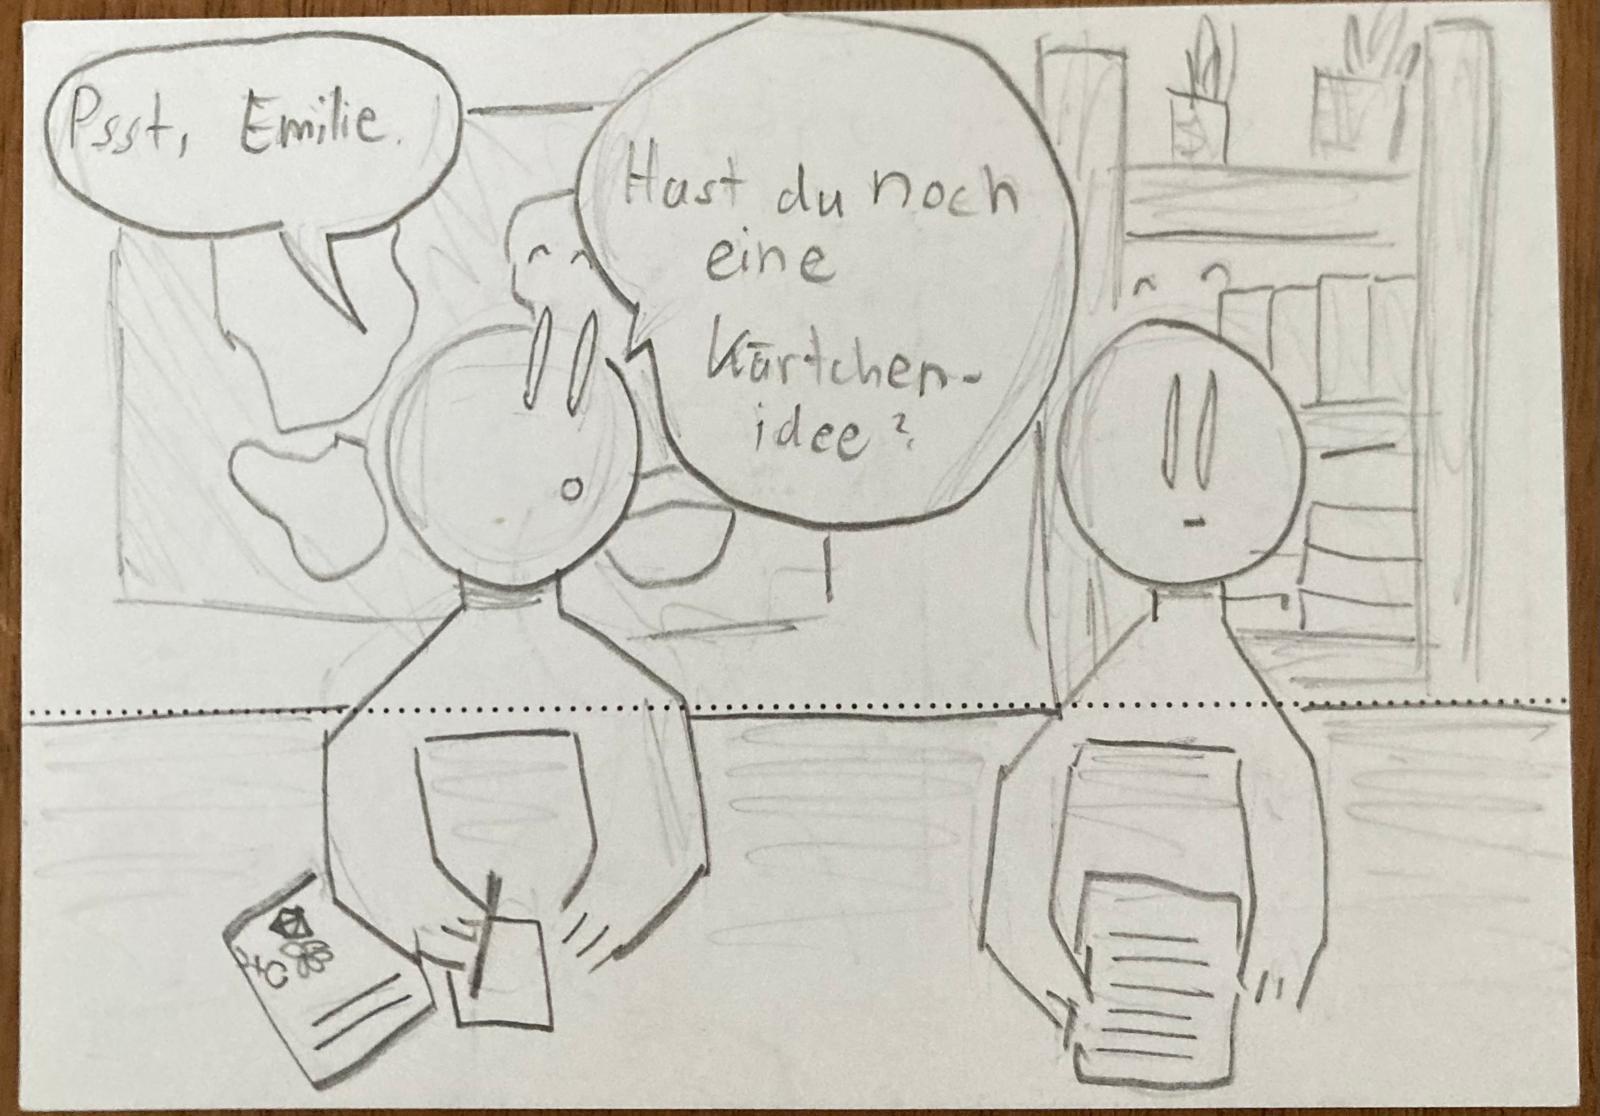 Psst, Emilie.
Hast du noch
eine
Kärtchen-
idee?